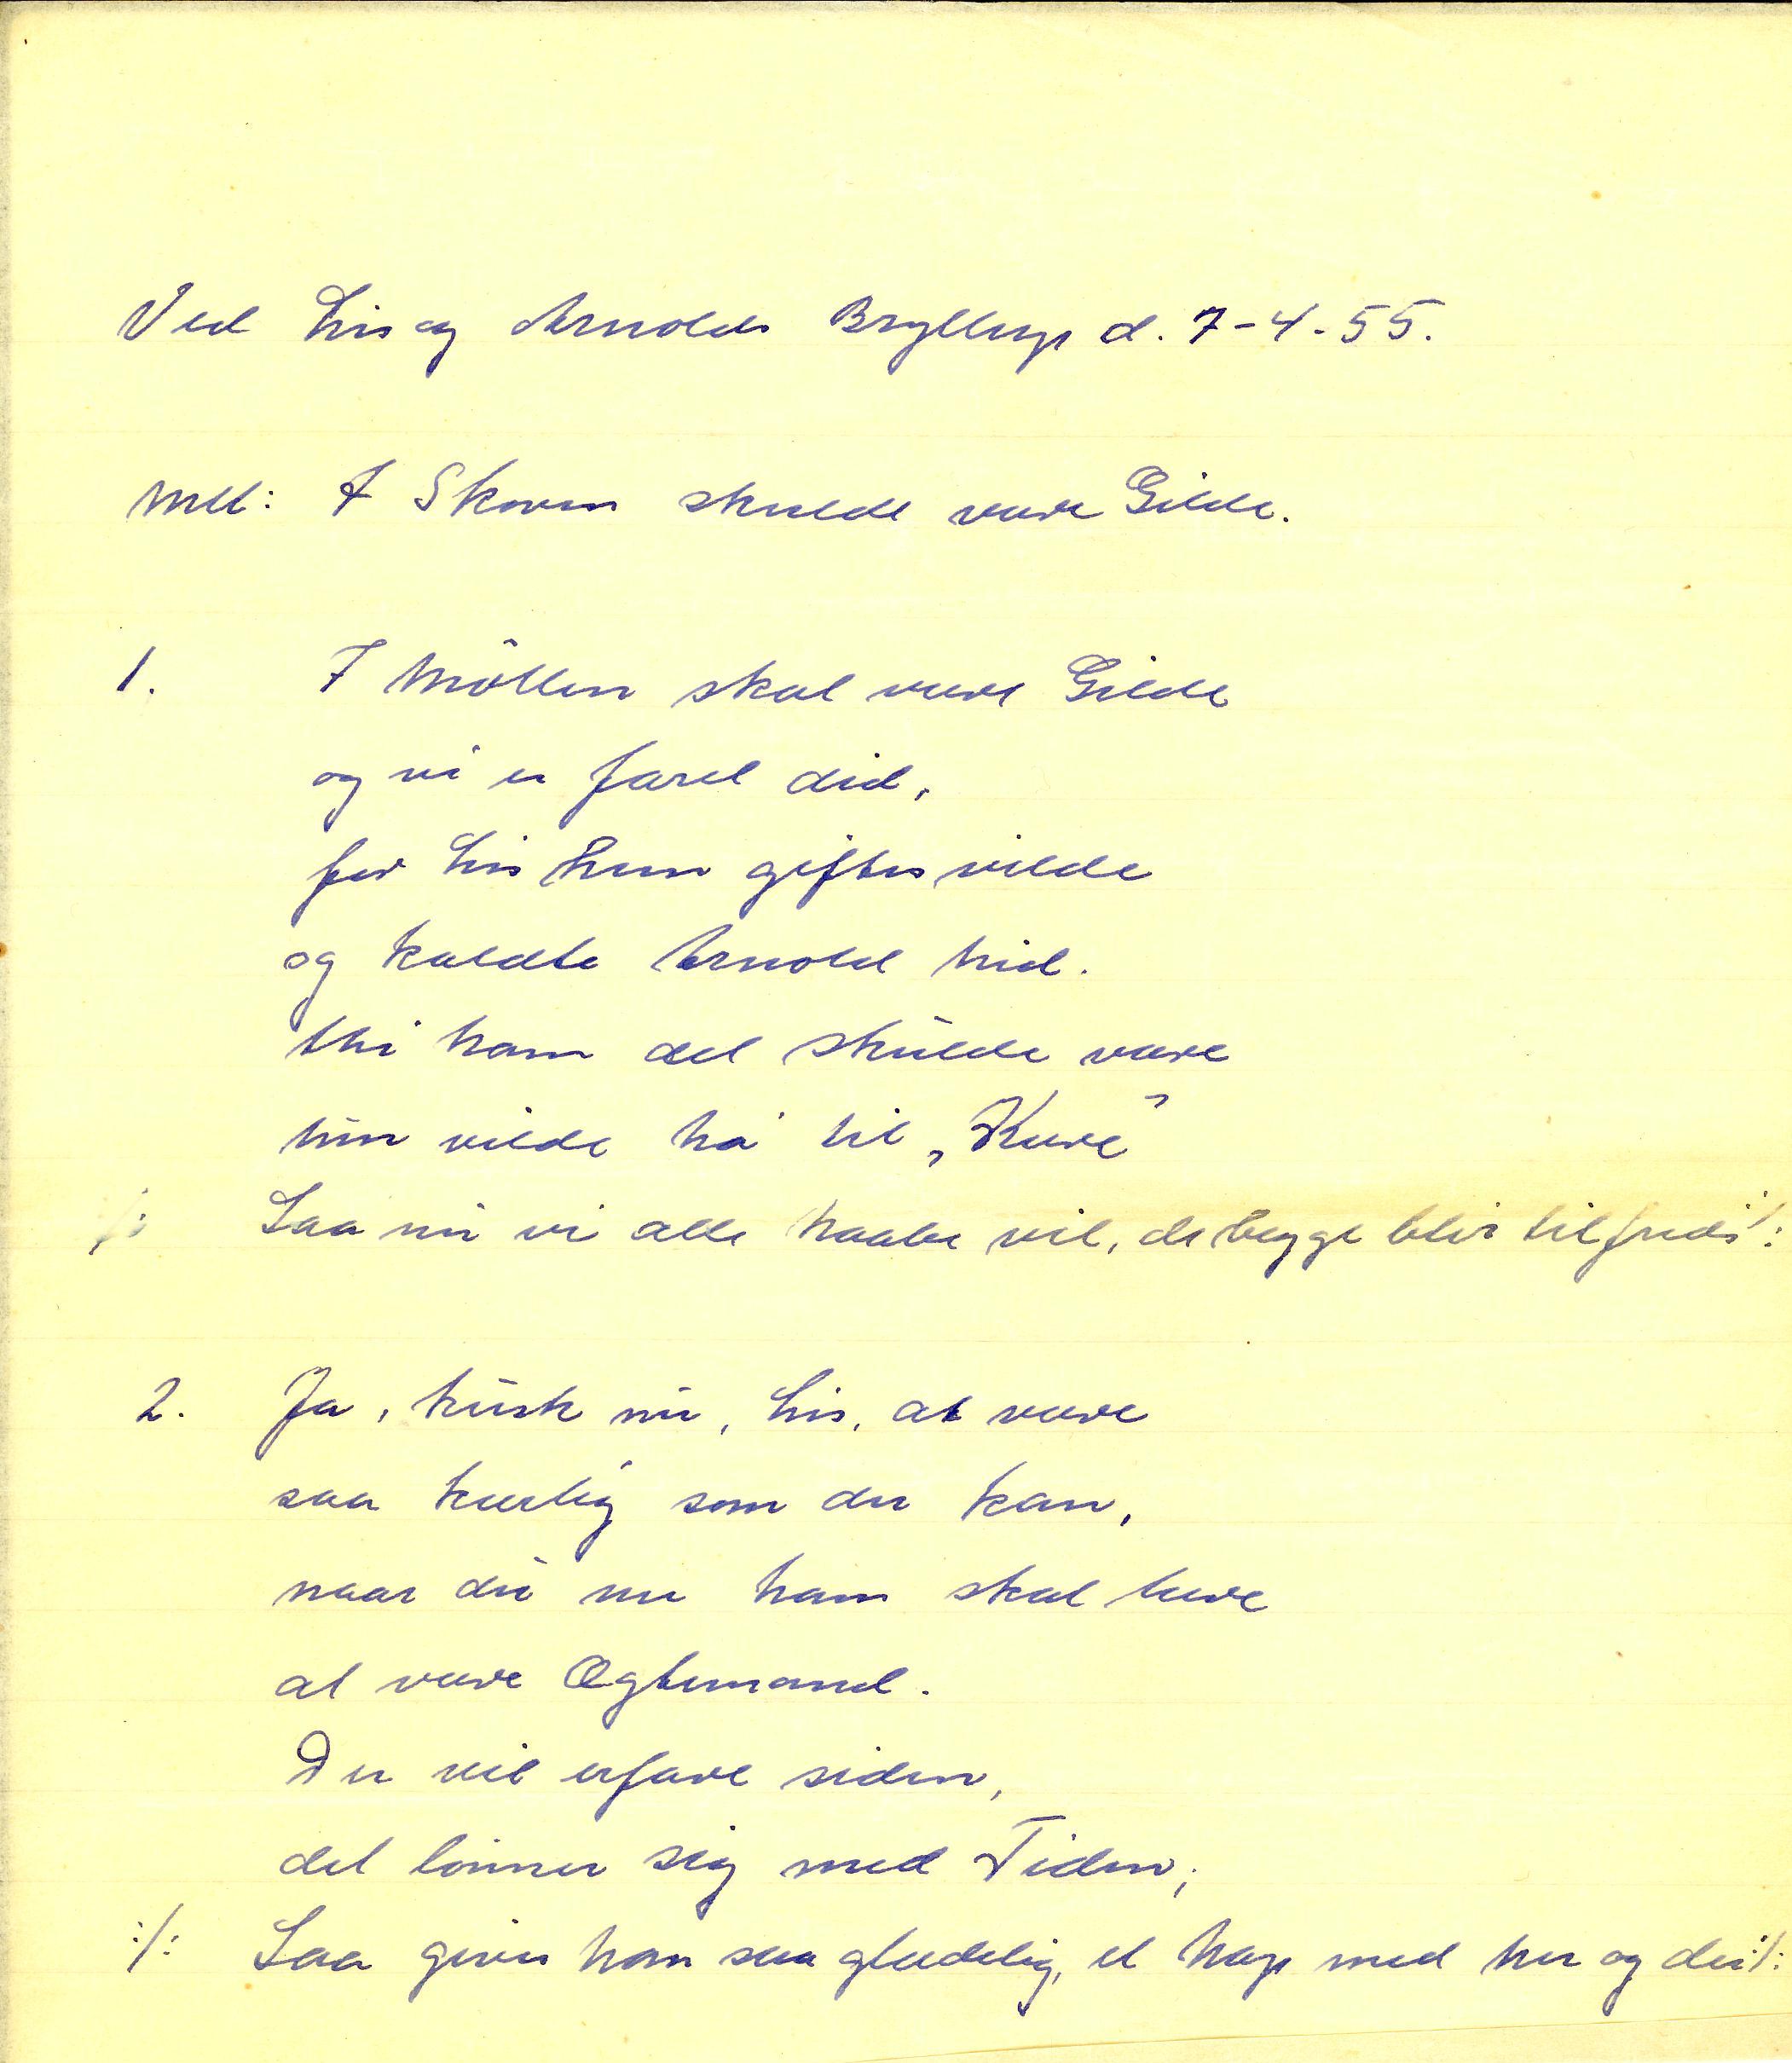 Ved Lis og Arnolds Bryllup d. 7-4-55.
Mel: I Skoven skulde være Gilde.
1. I Möllen skal være Gilde
og vi er faret did,
for Lis hun giftes vilde
og kaldte Arnold hid.
thi ham det skulde være
hun vilde ha' til „Kære”
:/: Saa nu vi alle haabe vil, de begge blir tilfreds :/:
2. Ja, husk nu, Lis, at være
saa kærlig som du kan,
naar du nu ham skal lære
at være Ægtemand.
Du vil erfare siden,
det lönner sig med Tiden;
:/: Saa giver han saa glædelig, et Nap med her og der :/: